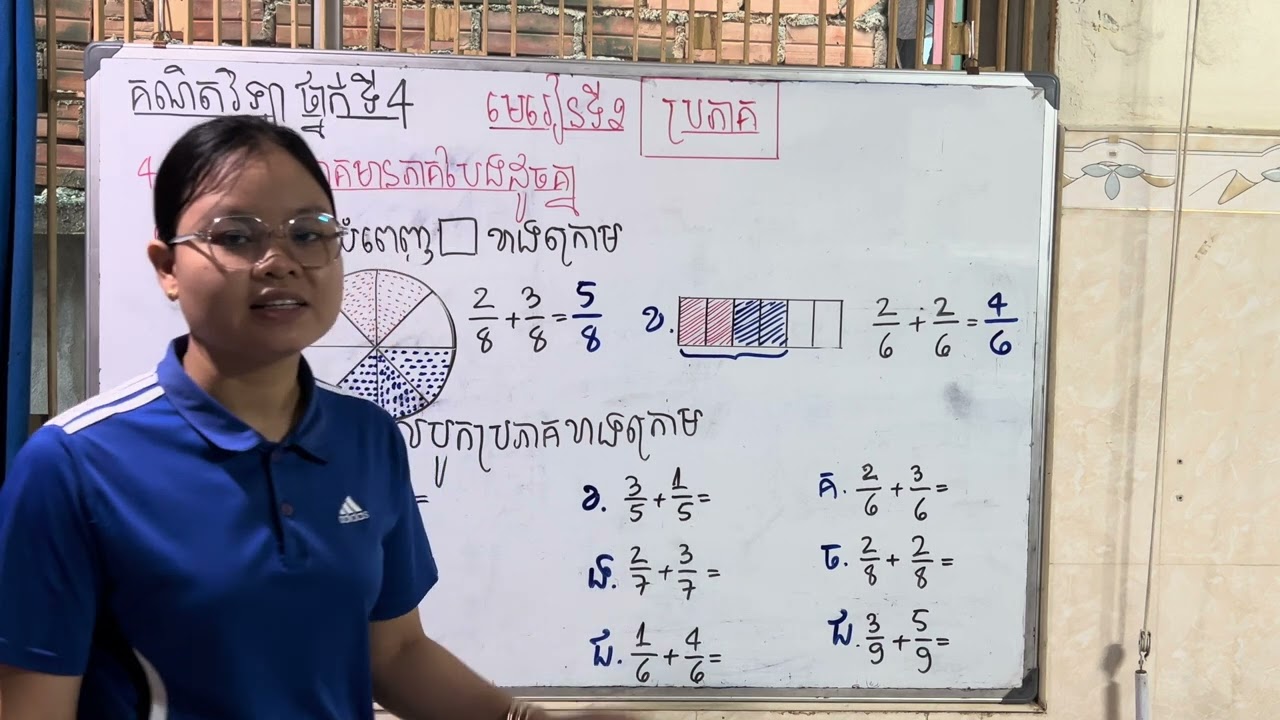 គណិតវិទ្យា ថ្នាក់ទី4 មេរៀនទី២ ប្រភាគ
4 ភាគមានភាគបែងដូចគ្នា
បំពេញ □ ខាងក្រោម
2/8 + 3/8 = 5/8 ខ. 2/6 + 2/6 = 4/6
បូកប្រភាគខាងក្រោម
= ខ. 3/5 + 1/5 = គ. 2/6 + 3/6 =
ង. 2/7 + 3/7 = ច. 2/8 + 2/8 =
ជ. 1/6 + 4/6 = ឈ. 3/9 + 5/9 =
adidas